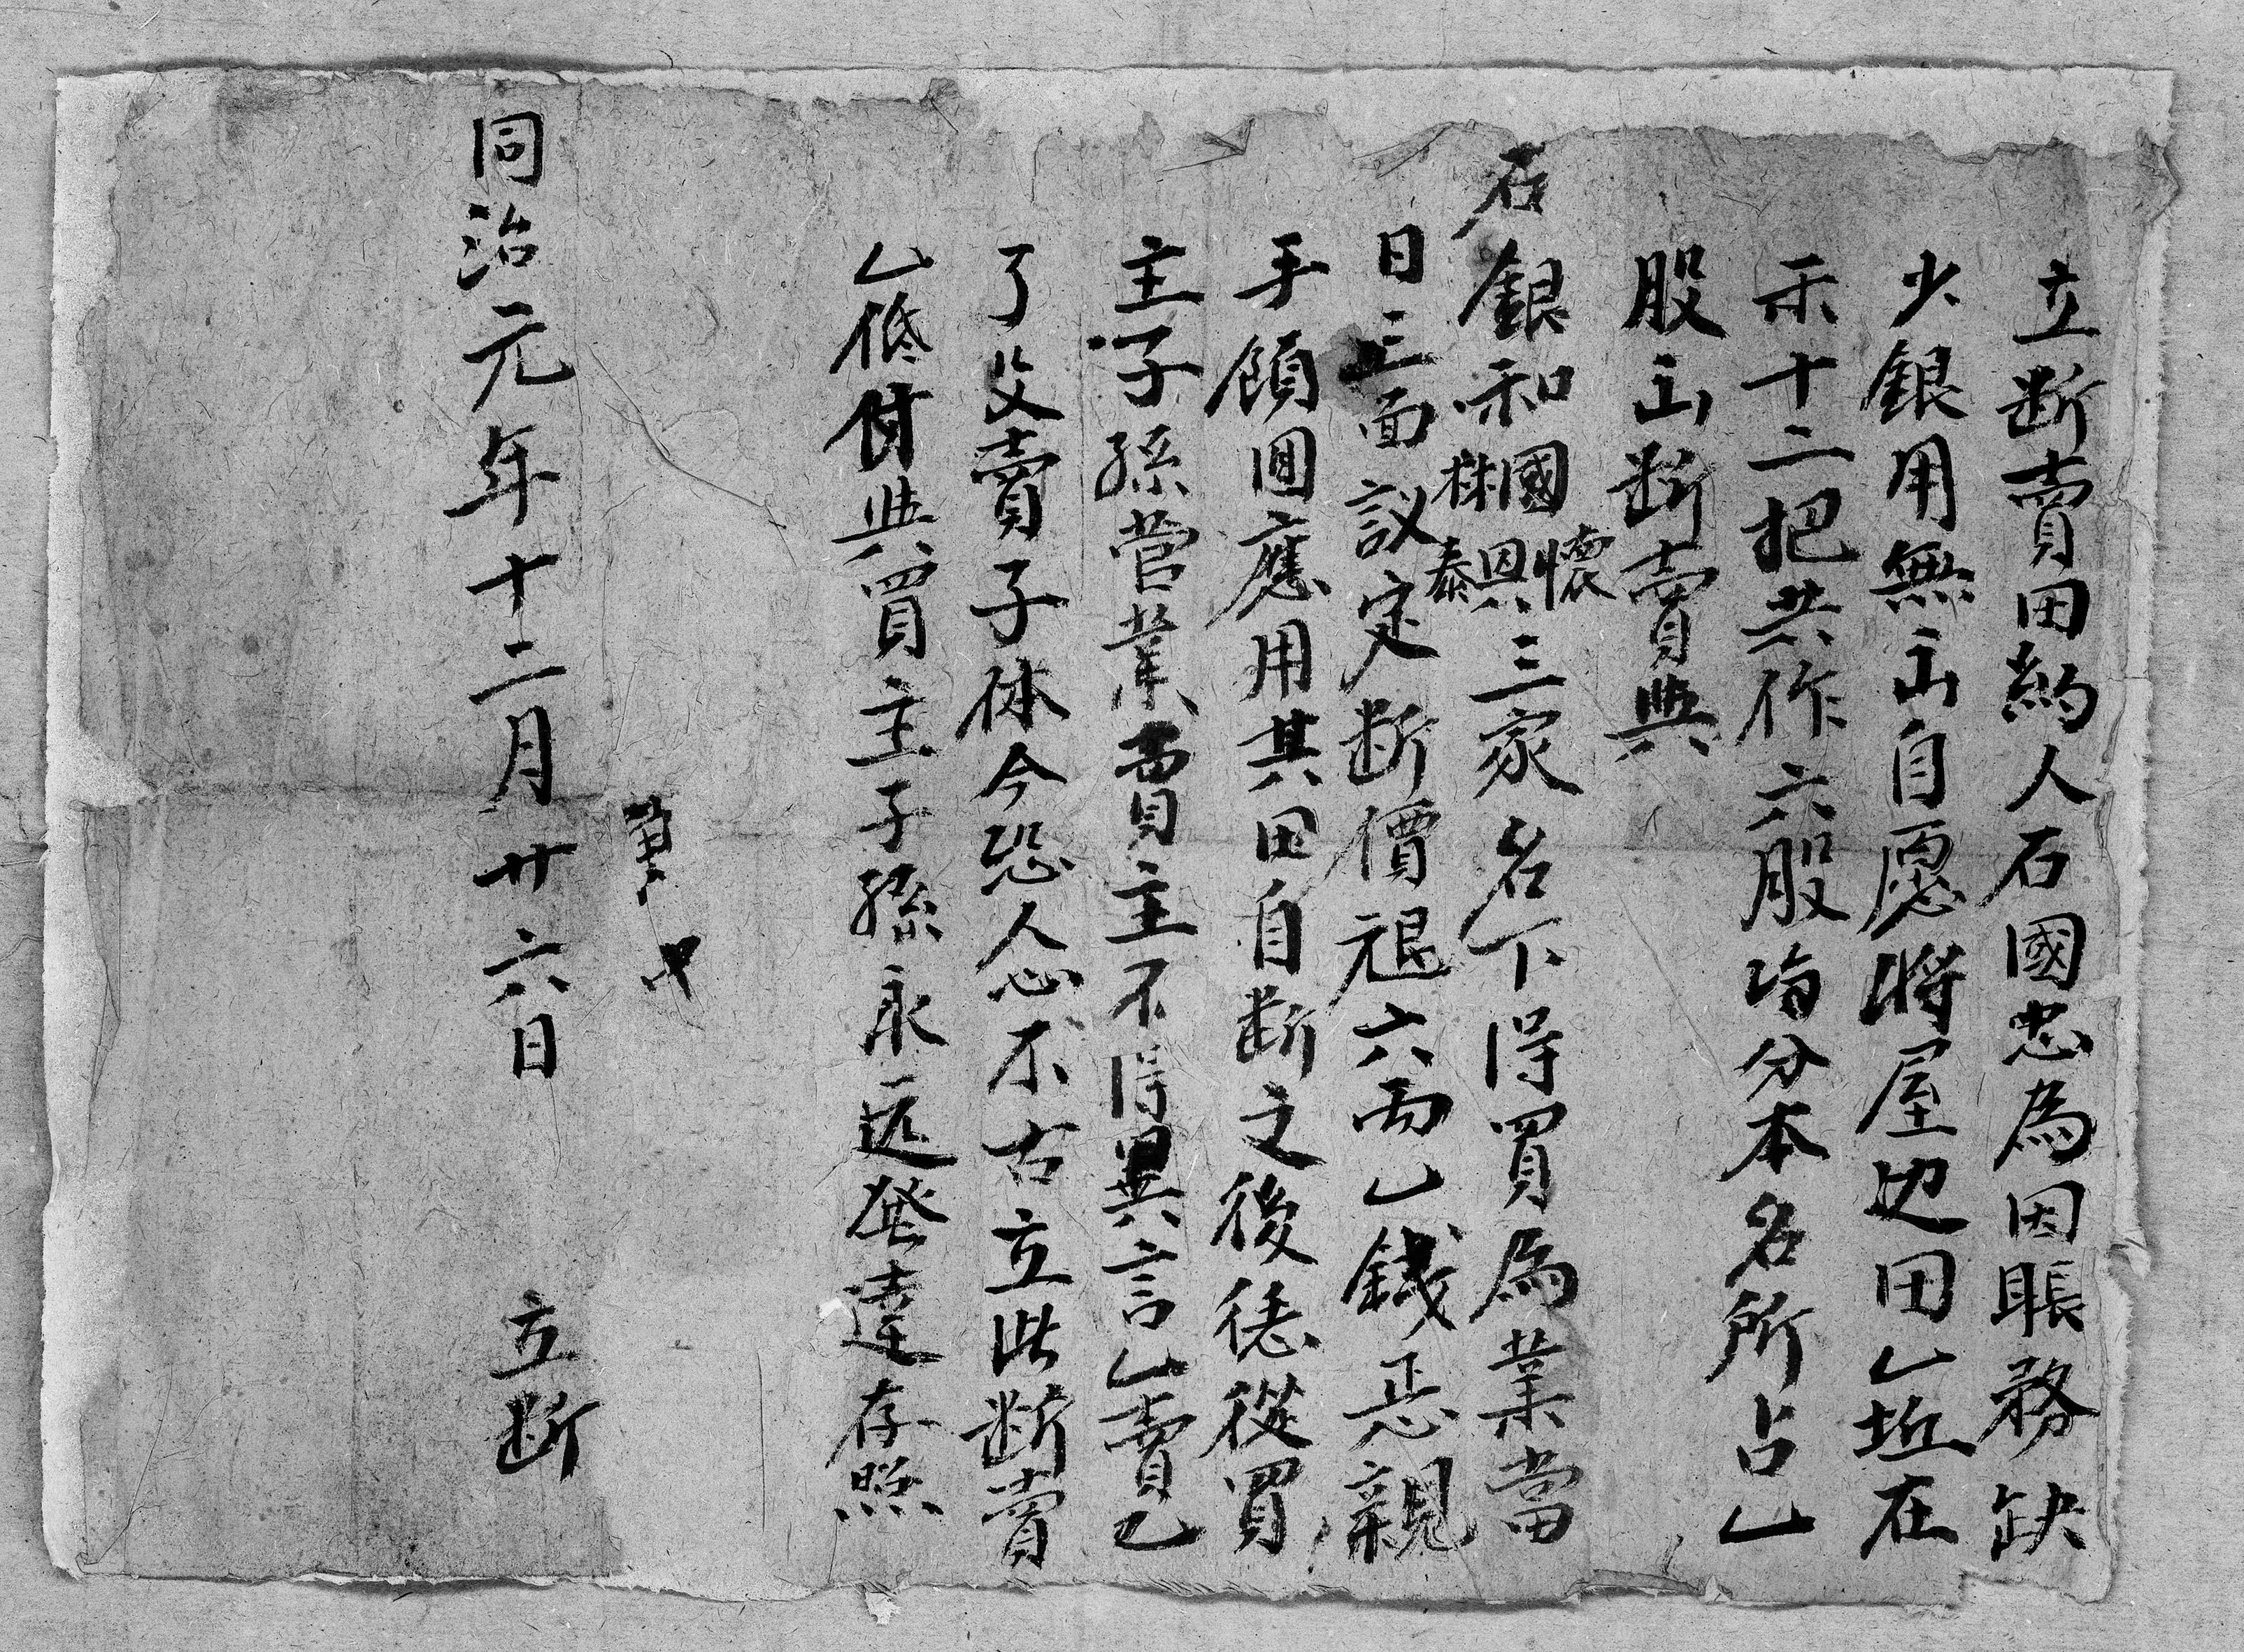 立断賣田約人石國忠為因賬務缺
少銀用無出自愿將屋边田乚坵在
禾十二把共作六股均分本名所占乚
股出断賣與
石銀和國株國興懷泰三家名下得買為業當
日三面議定断價禄六両乚錢忢親
手領囬應用其田自断之後德從買
主子孫管業賣主不得異言乚賣乚
了父賣子休今恐人心不古立此断賣
乚低付與買主子孫永远發達存照
筆
同治元年十二月廿六日 立断